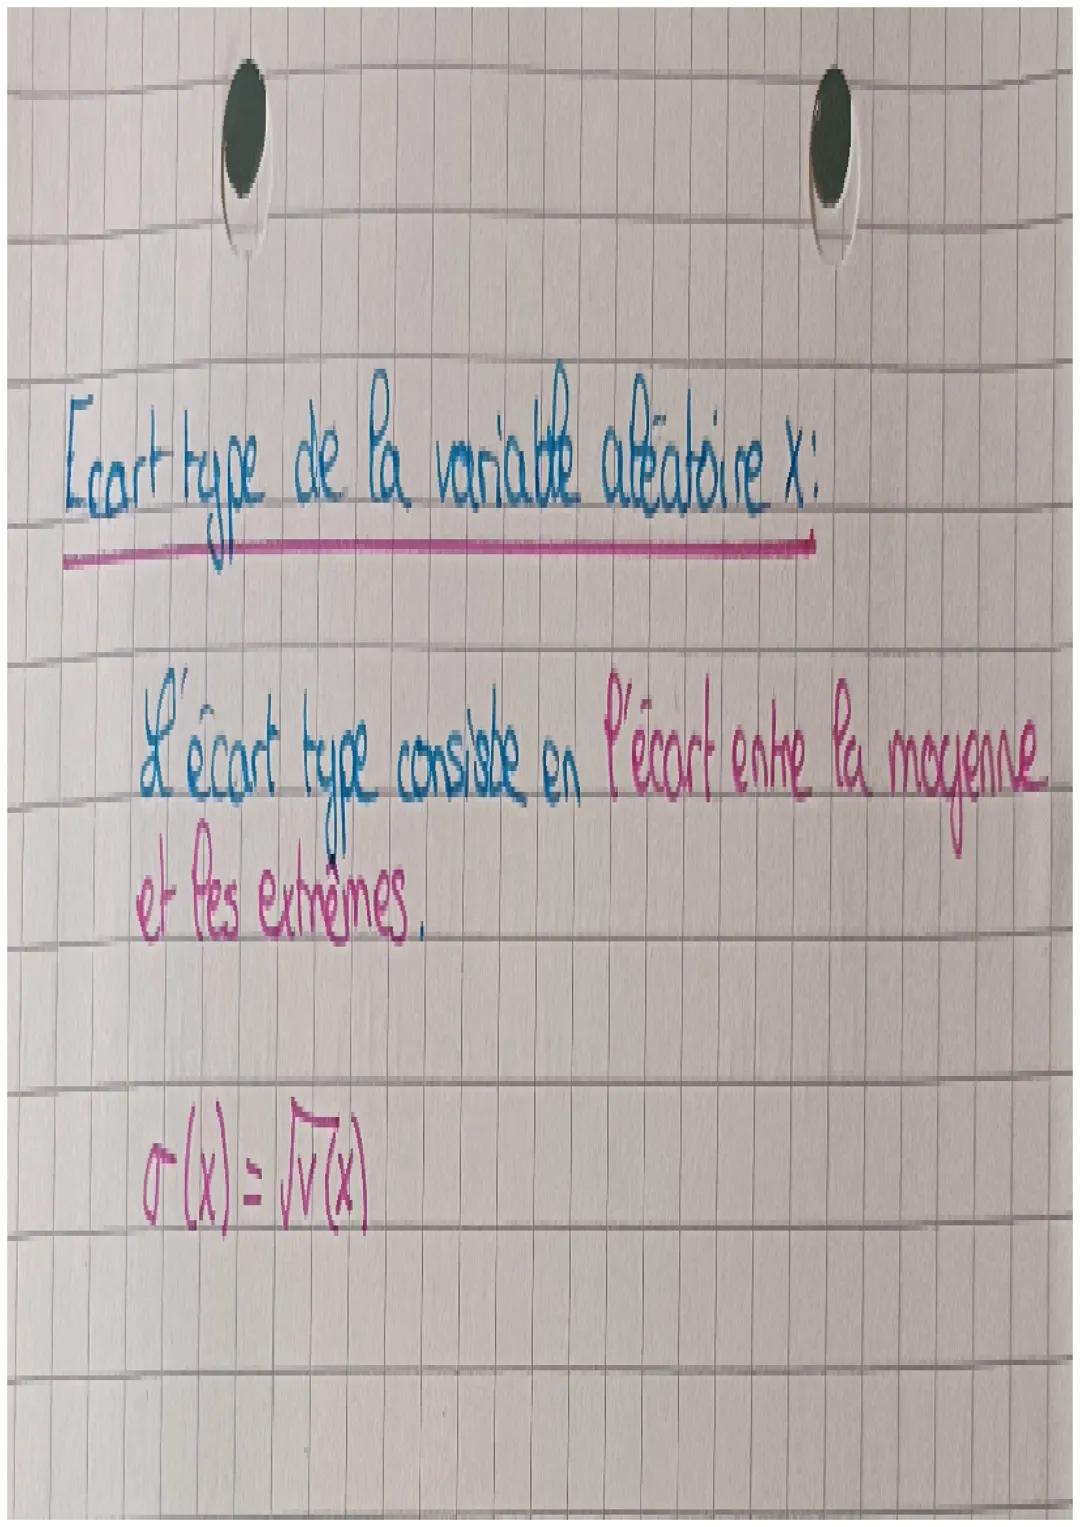 Ecart type de la variable aléatoire X :
L'écart type consiste en l'écart entre la moyenne
et les extrêmes.
σ(x) = √V(x)